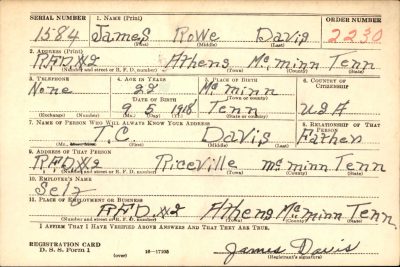 SERIAL NUMBER 1. NAME (Print) ORDER NUMBER
1584 James Rowe Davis 2230
(First) (Middle) (Last)
2. ADDRESS (Print)
R.F.D.#2 Athens McMinn Tenn
(Number and street or R. F. D. number) (Town) (County) (State)
3. TELEPHONE 4. AGE IN YEARS 5. PLACE OF BIRTH 6. COUNTRY OF CITIZENSHIP
None 22 McMinn
DATE OF BIRTH (Town or county)
9 5 1918 Tenn USA
(Exchange) (Number) (Mo.) (Day) (Yr.) (State or country)
7. NAME OF PERSON WHO WILL ALWAYS KNOW YOUR ADDRESS 8. RELATIONSHIP OF THAT PERSON
T.C. Davis Father
(First) (Middle) (Last)
9. ADDRESS OF THAT PERSON
R.F.D.#2 Riceville McMinn Tenn
(Number and street or R. F. D. number) (Town) (County) (State)
10. EMPLOYER'S NAME
Self
11. PLACE OF EMPLOYMENT OR BUSINESS
R.F.D.#2 Athens McMinn Tenn
(Number and street or R. F. D. number) (Town) (County) (State)
I AFFIRM THAT I HAVE VERIFIED ABOVE ANSWERS AND THAT THEY ARE TRUE.
REGISTRATION CARD
D. S. S. Form 1 16—17105 James Davis
(over) (Registrant's signature)